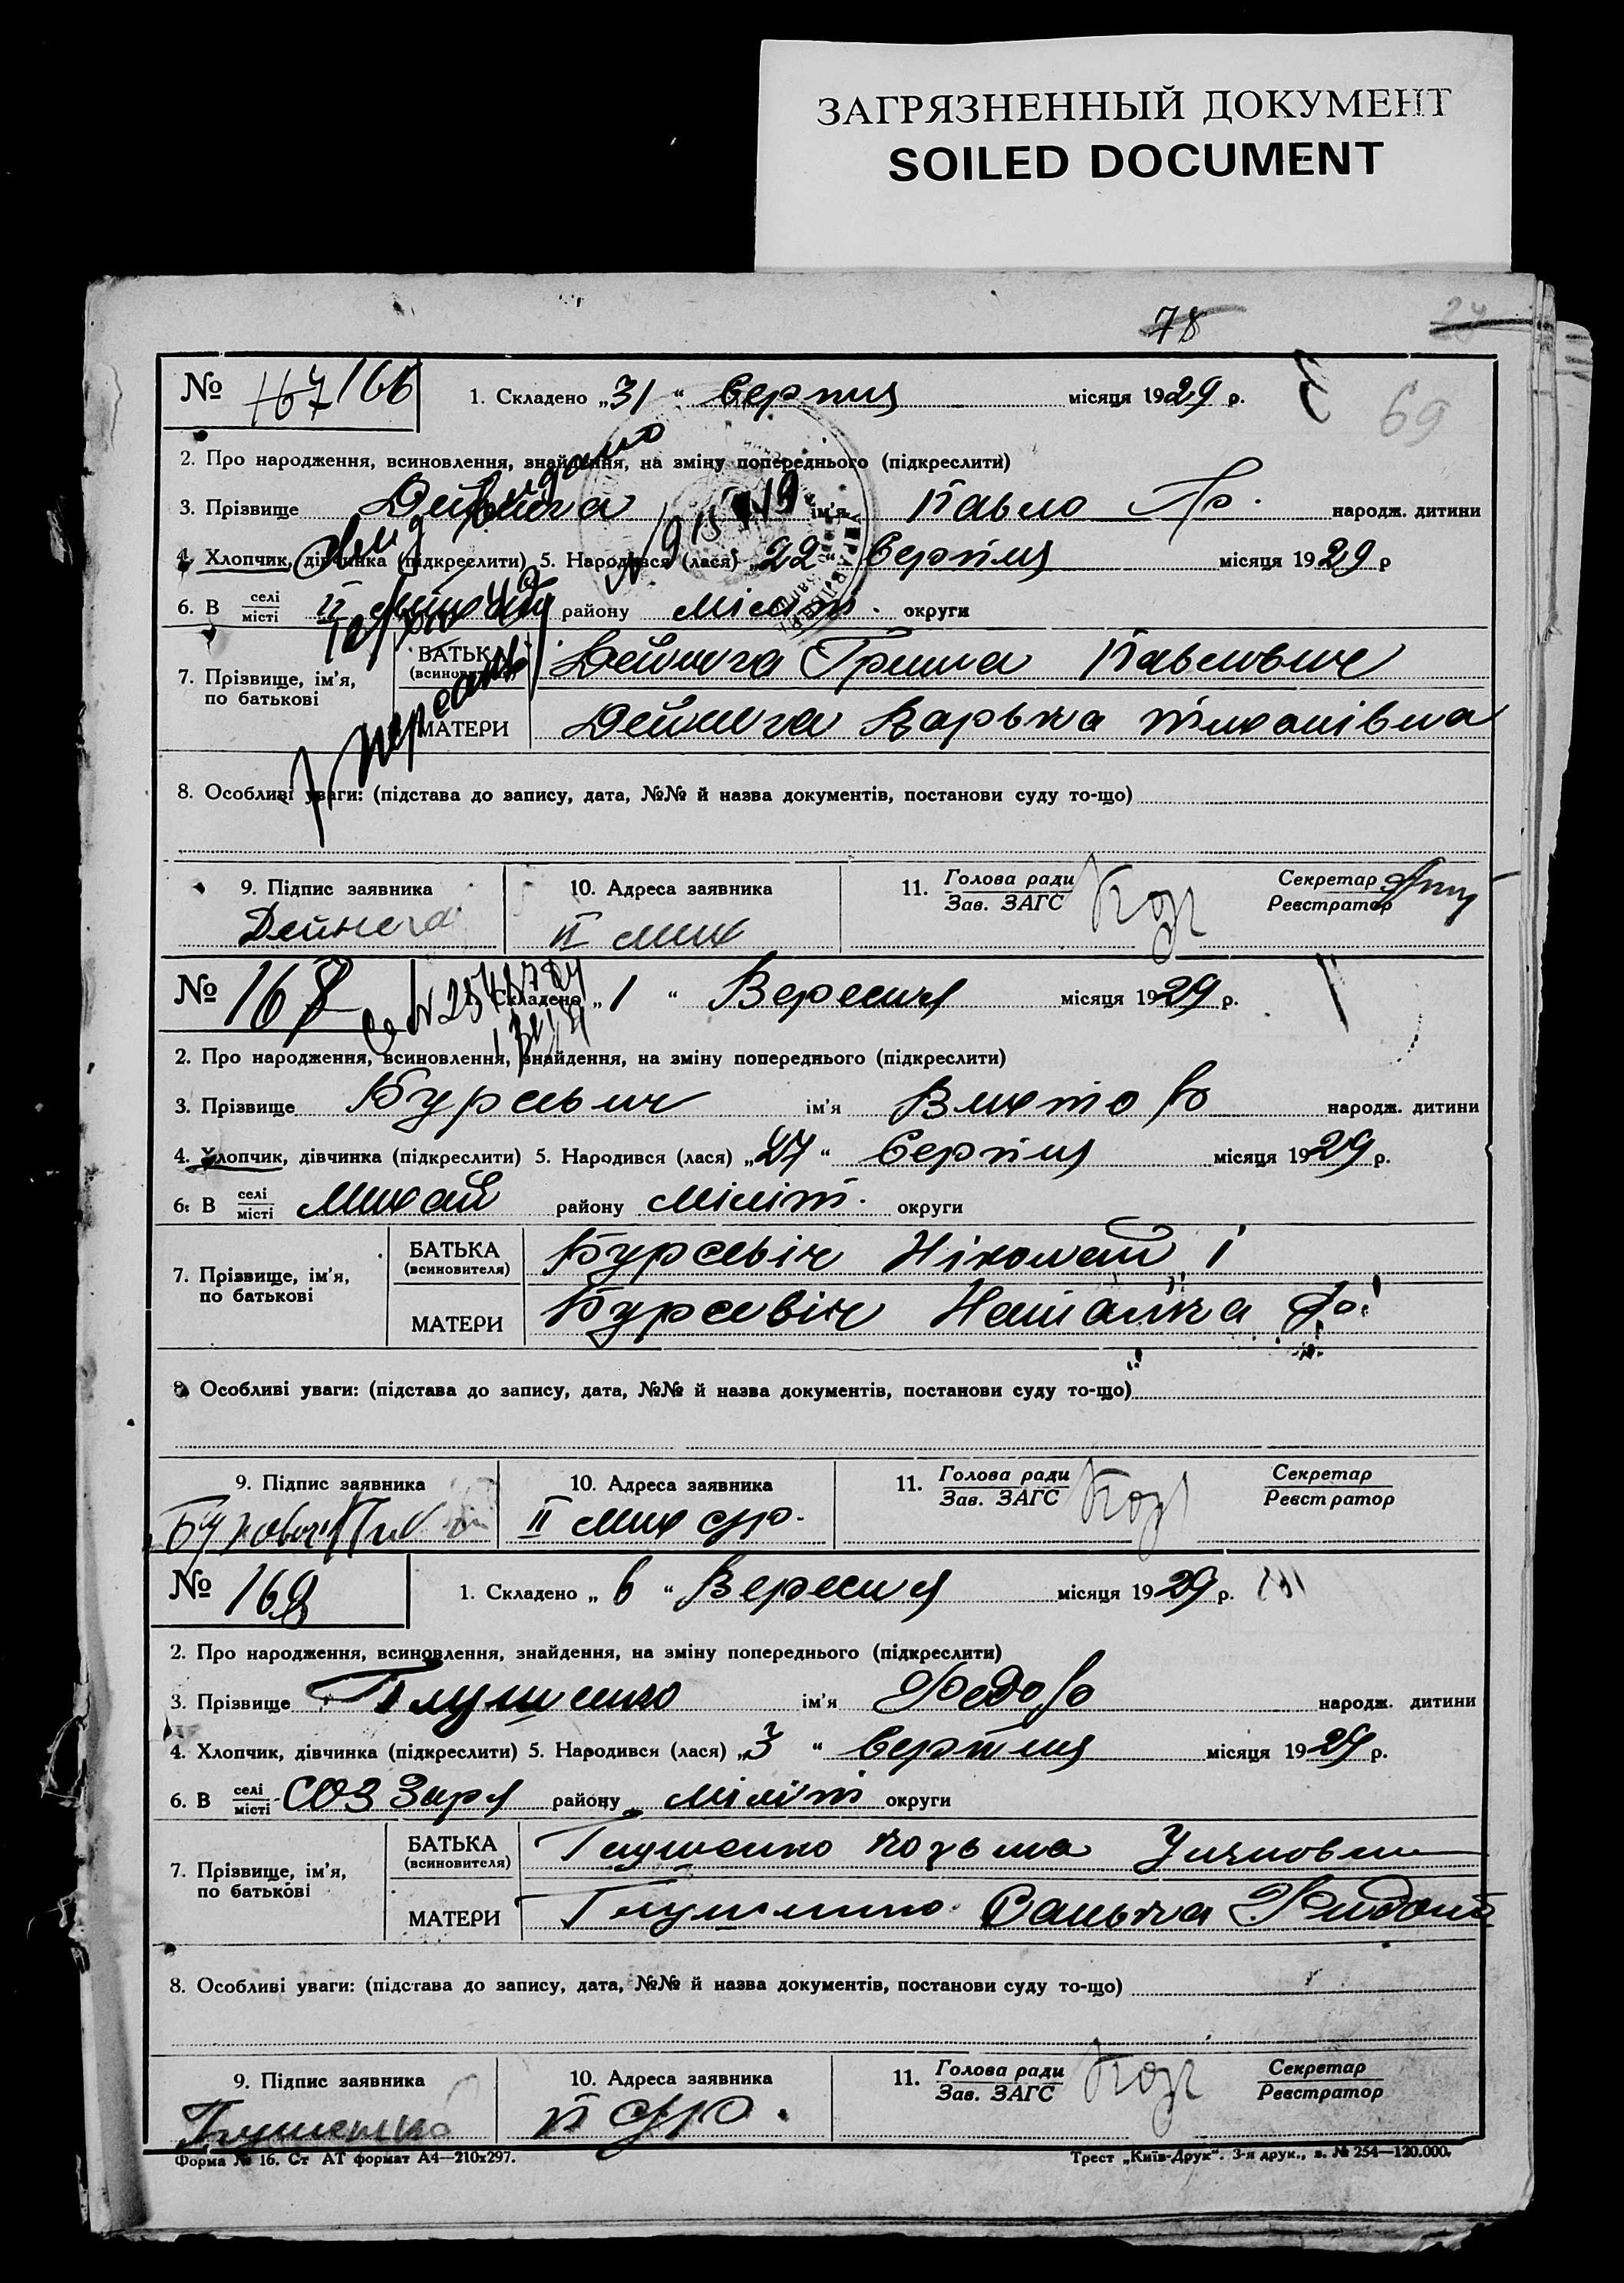 ЗАГРЯЗНЕННЫЙ ДОКУМЕНТ
SOILED DOCUMENT
78
24
69
№ 167 166
1. Складено „31“ Серпня місяця 1929 р.
2. Про народження, всиновлення, знайдення, на зміну попереднього (підкреслити)
3. Прізвище Дейнега ім’я Павло Гр. народж. дитини
4. Хлопчик, дівчинка (підкреслити) 5. Народився (лася) „22“ Серпня місяця 1929 р
6. В селі місті II Михай району Меліт. округи
7. Прізвище, ім’я, по батькові
БАТЬКА (всиновителя) Дейнега Гриша Павлович
МАТЕРИ Дейнега Варька
8. Особливі уваги: (підстава до запису, дата, №№ й назва документів, постанови суду то-що)
9. Підпис заявника
Дейнега
10. Адреса заявника
II мих
11. Голова ради Зав. ЗАГС
Секретар Реєстратор
№ 167
1. Складено „1“ Вересня місяця 1929 р.
2. Про народження, всиновлення, знайдення, на зміну попереднього (підкреслити)
3. Прізвище Бурсевич ім’я Виктор народж. дитини
4. Хлопчик, дівчинка (підкреслити) 5. Народився (лася) „27“ Серпня місяця 1929 р.
6. В селі місті Михай району Меліт. округи
7. Прізвище, ім’я, по батькові
БАТЬКА (всиновителя) Бурсевіч Ніколай І
МАТЕРИ Бурсевіч Наталка
8. Особливі уваги: (підстава до запису, дата, №№ й назва документів, постанови суду то-що)
9. Підпис заявника
10. Адреса заявника
II мих с/р.
11. Голова ради Зав. ЗАГС
Секретар Реєстратор
№ 168
1. Складено „6“ Вересня місяця 1929 р.
2. Про народження, всиновлення, знайдення, на зміну попереднього (підкреслити)
3. Прізвище Глушенко ім’я Федор народж. дитини
4. Хлопчик, дівчинка (підкреслити) 5. Народився (лася) „3“ Серпня місяця 1929 р.
6. В селі місті СОЗ Заря району Меліт округи
7. Прізвище, ім’я, по батькові
БАТЬКА (всиновителя) Глушенко Козьма
МАТЕРИ Глушенко Санька
8. Особливі уваги: (підстава до запису, дата, №№ й назва документів, постанови суду то-що)
9. Підпис заявника
Глушенко
10. Адреса заявника
II с/р.
11. Голова ради Зав. ЗАГС
Секретар Реєстратор
Форма № 16. Ст АТ формат А4—210х297.
Трест „Київ-Друк“. 3-я друк., з. № 254—120.000.